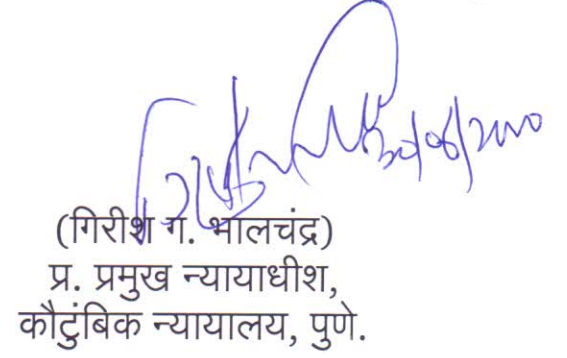 (गिरीश ग. भालचंद्र)
प्र. प्रमुख न्यायाधीश,
कौटुंबिक न्यायालय, पुणे.